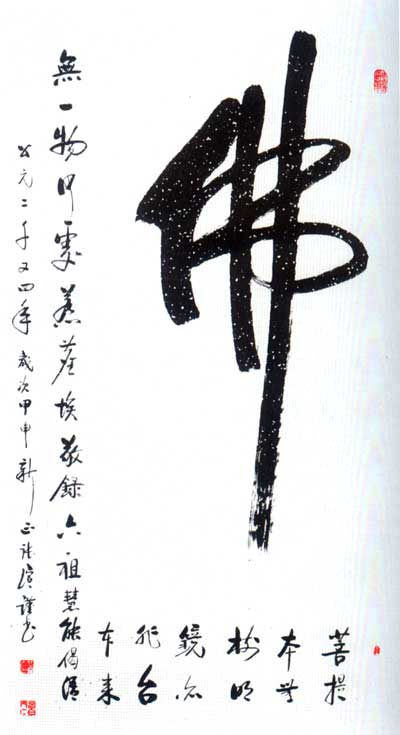 佛
菩提
本無
樹明
鏡亦
非台
本来
無一物何處惹塵埃敬録六祖慧能偈
公元二千又四年歲次甲申新正謹书